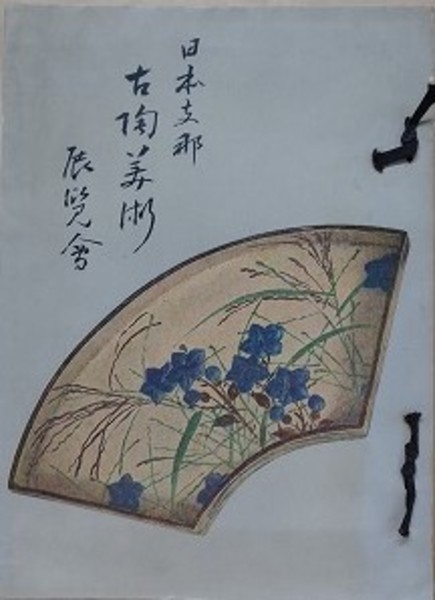 日本支那
古陶美術
展覧會